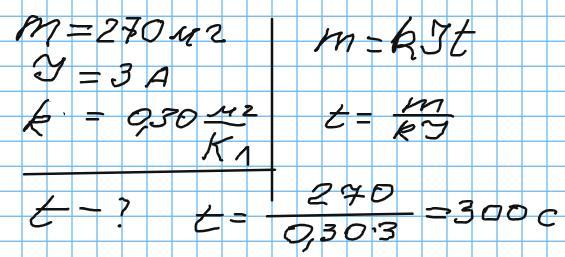 m = 270 мг
I = 3 А
k = 0,30 мг/Кл
t - ?
m = kIt
t = m/kI
t = 270/0,30·3 = 300 с